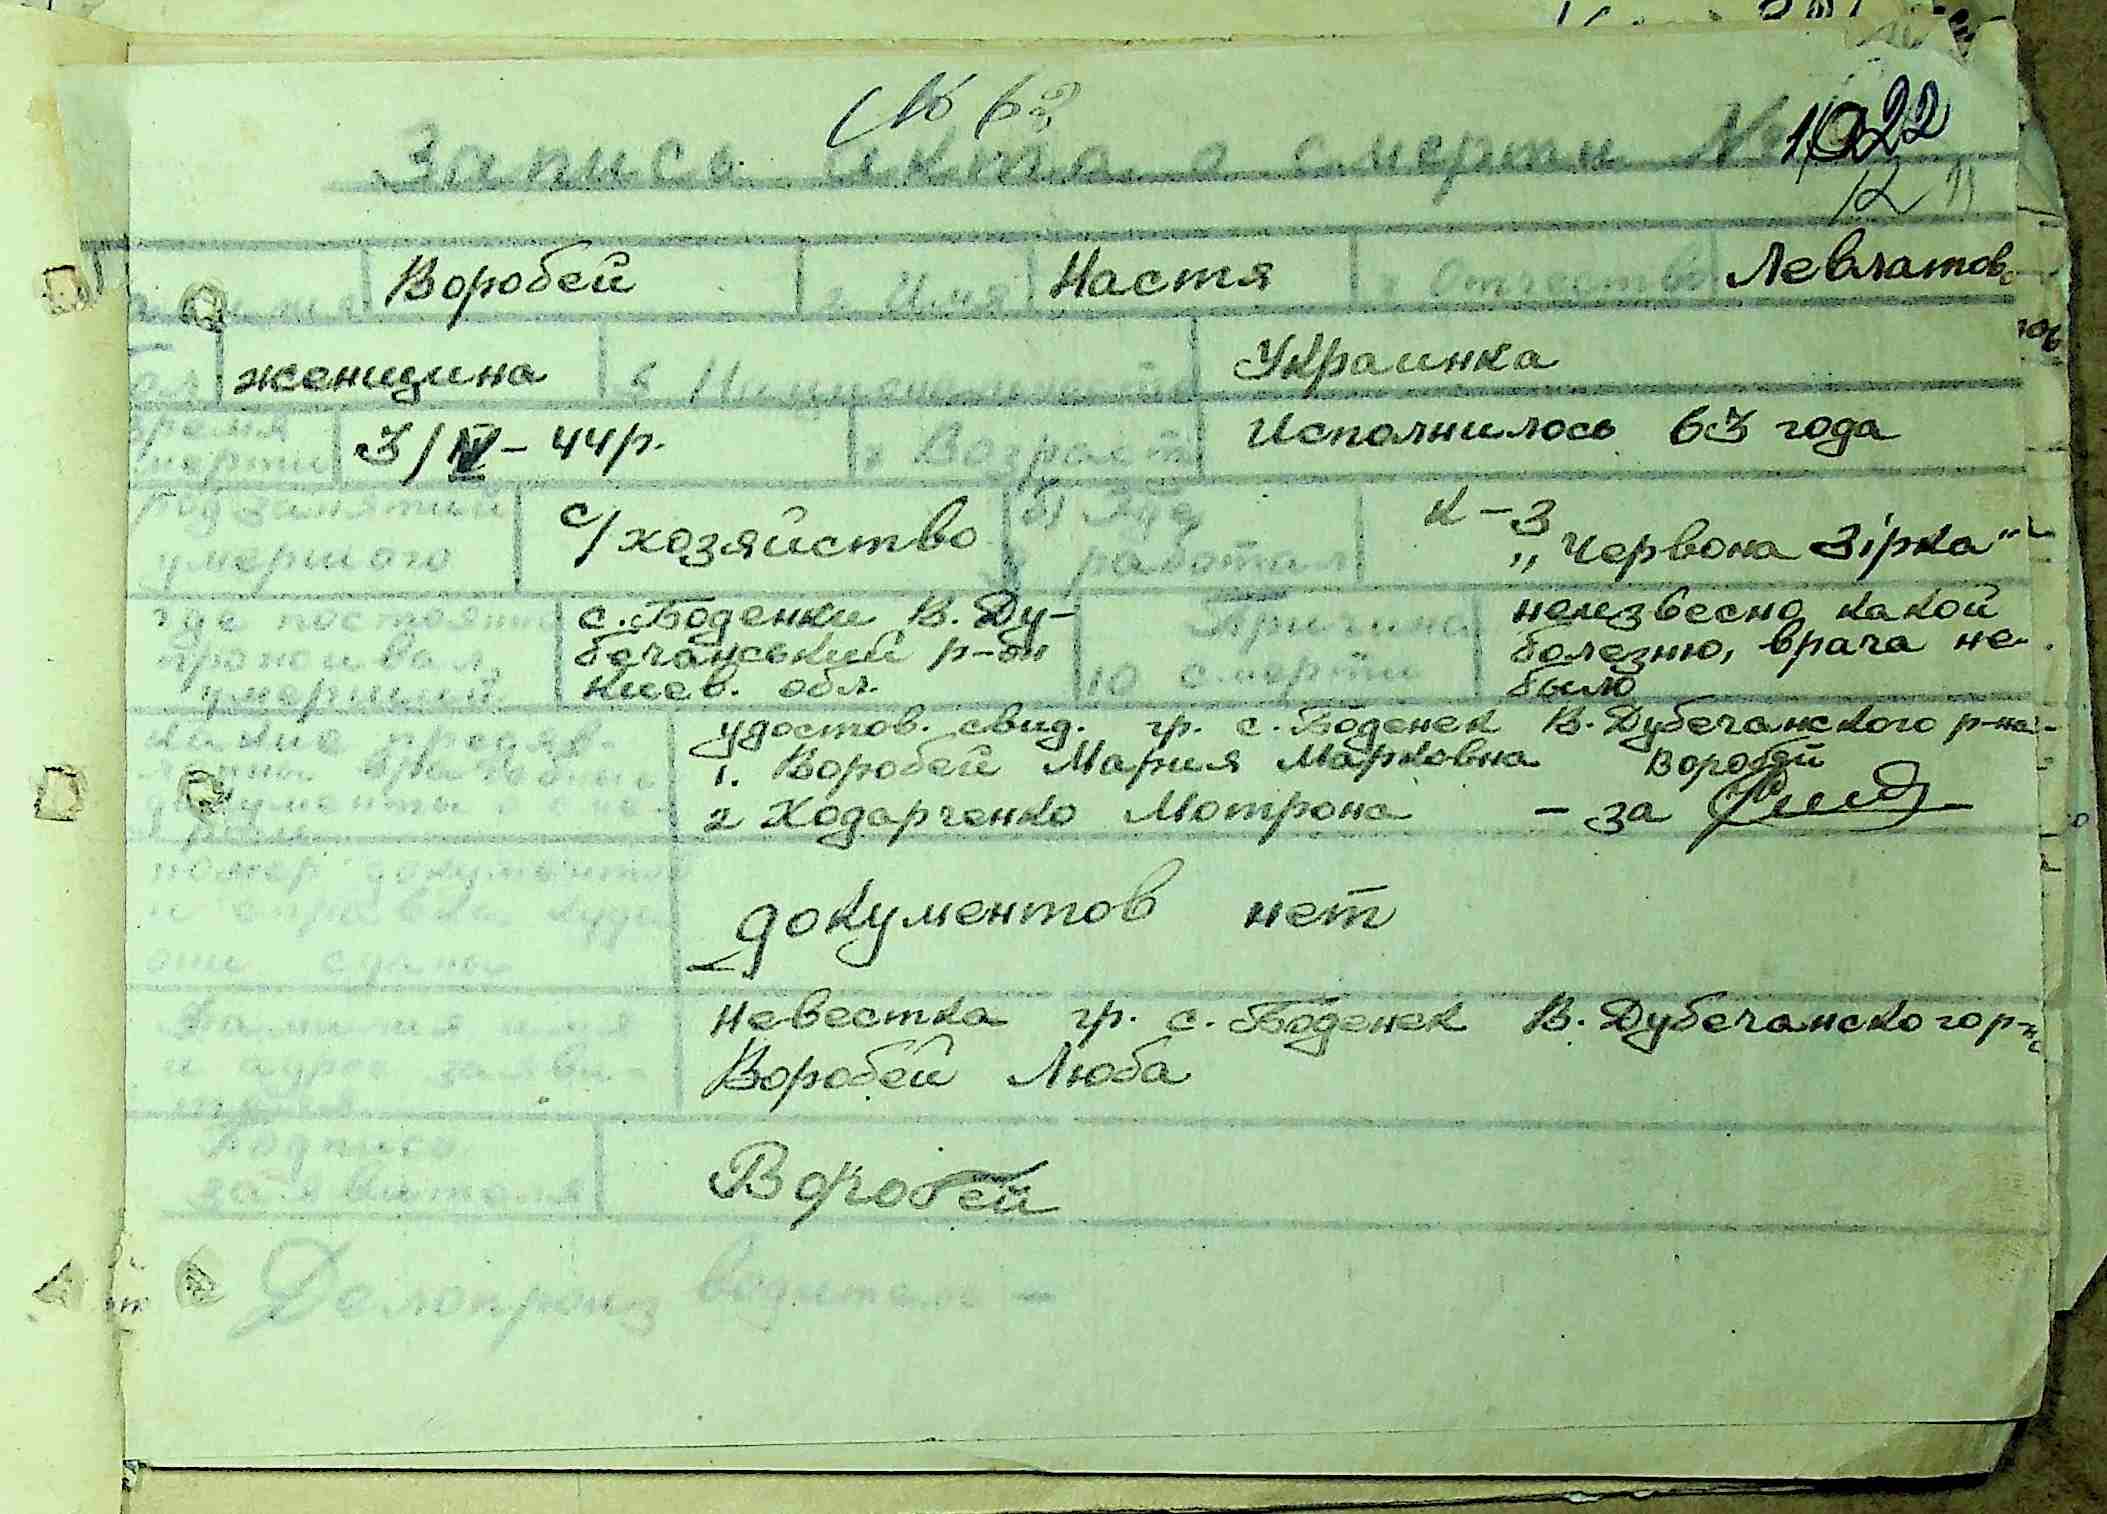 № 63
Запись акта о смерти № 1022
12
Воробей 2 Имя Настя 3 Отчество Левлатов
женщина 5 Национальность Украинка
время смерти 3/IV – 44 р. 7 Возраст Исполнилось 63 года
род занятий умершого с/хозяйство б) Где работал к-з „Червона Зірка"
где постоянно проживал умерший с. Боденки В. Ду-
бечанський р-он
Киев. обл.
10 Причина смерти неизвесно какой
болезню, врача не
было
какие предяв-
лены врачебные
документы
удостов. свид. гр. с. Боденек В. Дубечанского р-на
1. Воробей Мария Марковна Воробей
2 Ходарченко Мотрона – за
номер документа
и справки куда
они сданы
документов нет
Фамилия имя
и адрес заяви-
теля
невестка гр. с. Боденек В. Дубечанского р-н
Воробей Люба
Подпись
заявителя
Воробей
Делопроизводитель –